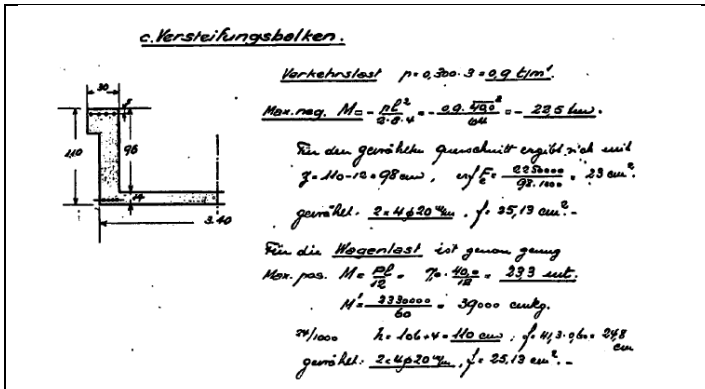 c. Versteifungsbalken.
Verkehrslast p = 0,300 · 3 = 0,9 t/m'.
Max. neg. M = - pl²/2·8·4 = - 0,9 · 40,0²/64 = - 22,5 tm.
Für den gewählten Querschnitt ergibt sich mit
z = 110 - 12 = 98 cm, erf Fe = 2250000/98·1000 = 23 cm².
gewählt: 2 × 4 ϕ 20 m/m, f = 25,13 cm². -
Für die Wagenlast ist genau genug
Max. pos. M = Pl/12 = 7,0 · 40,0/12 = 23,3 mt.
M' = 2330000/60 = 39000 cmkg.
24/1000 h = 106 + 4 = 110 cm; f = 41,3 · 0,60 = 24,8 cm
gewählt: 2 × 4 ϕ 20 m/m, f = 25,13 cm². -
30
5
110
96
14
3.40